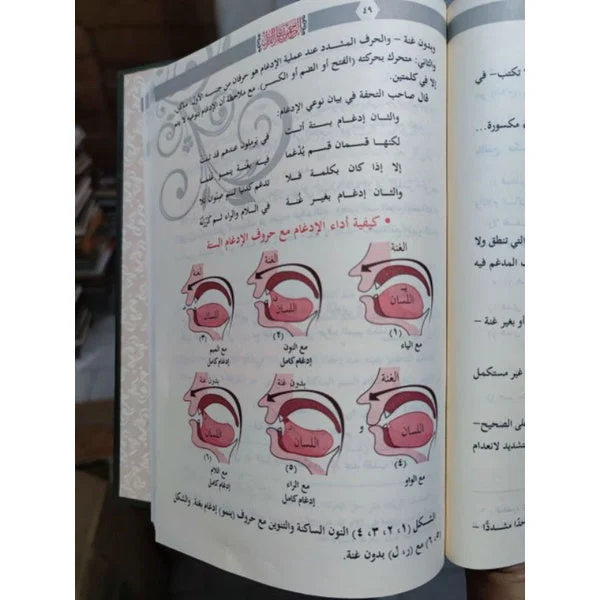 ٤٩
وبدون غنة – والحرف المشدد عند عملية الإدغام هو حرفان من جنسه الأول: ساكن
والثاني: متحرك بحركته (الفتح أو الضم أو الكسر). مع ملاحظة أن الإدغام بنوعيه لا يتم
إلا في كلمتين.
قال صاحب التحفة في بيان نوعي الإدغام:
والثان إدغام بستة أتت في يرملون عندهم قد ثبتت
لكنها قسمان قسم يُدْغما فيه بغنة بينمو علما
إلا إذا كان بكلمة فلا تدغم كدنيا ثم صنوان تلا
والثان إدغام بغير غنة في اللام والراء ثم كررنه
• كيفية أداء الإدغام مع حروف الإدغام الستة
الغنة
اللسان
(١)
مع الياء
الغنة
اللسان
(٢)
مع النون
إدغام كامل
الغنة
اللسان
(٣)
مع الميم
إدغام كامل
الغنة
و
اللسان
(٤)
مع الواو
بدون غنة
اللسان
(٥)
مع الراء
إدغام كامل
بدون غنة
اللسان
(٦)
مع اللام
إدغام كامل
الشكل (١، ٢، ٣، ٤) النون الساكنة والتنوين مع حروف (ينمو) إدغام بغنة. والشكل
(٥، ٦) مع (ر، ل) بدون غنة.
تكتب – في
مكسورة...
التي تنطق ولا
المدغم فيه
أو بغير غنة –
غير مستكمل
على الصحيح –
تشديد لانعدام
مشددًا –